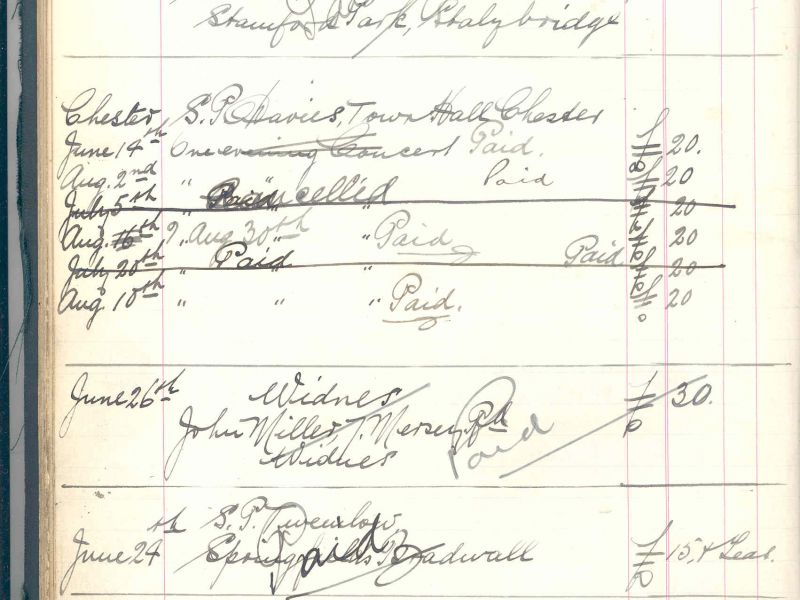 Stamford Park, Stalybridge
Chester S. P. Davies, Town Hall Chester
June 14th One evening Concert Paid. £20.
Aug. 2nd " " Paid £20
July 5th " Paid Cancelled " £20
Aug. 16th ? Aug 30th " Paid £20
July 20th " Paid " Paid £20
Aug. 10th " " " Paid. £20
June 26th Widnes £30.
John Miller, Mersey Rd
Widnes
Paid
S. P.
June 24th Bradwall £15, & Teas.
Paid